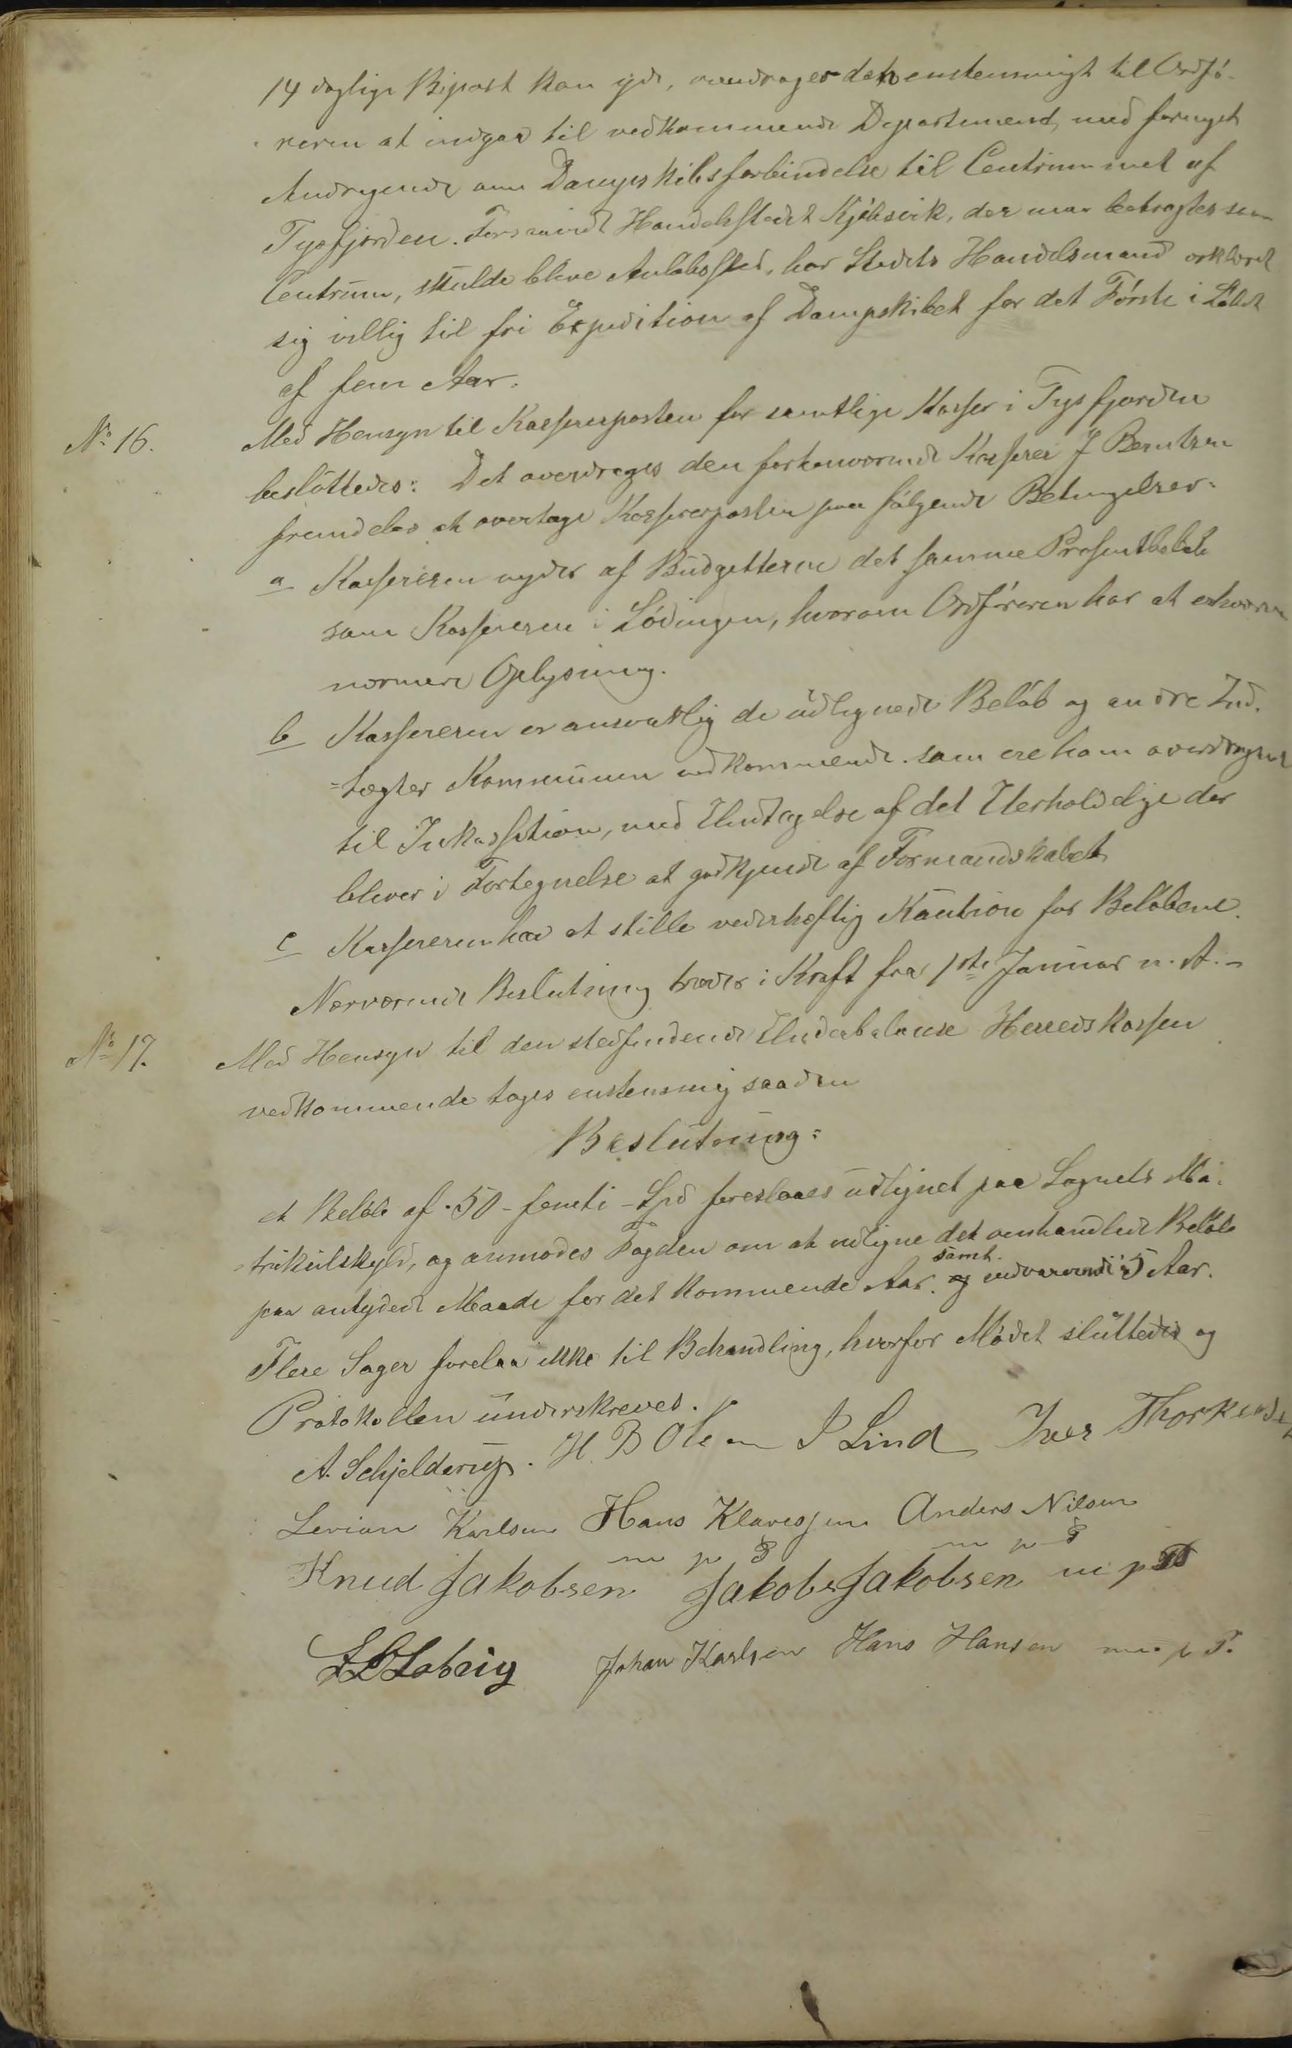 14 daglige Bipost kan yde, overdrages det enstemmigt til Ordfö-
reren at indgaa til vedkommende Departement, med fornyet
Andragende om Dampskibsforbindelse til Centrummet af
Tysfjorden. Forsaavidt Handelsstedet Kjöbsvik, der maa betragtes som
Centrum, skulde blive Anlöbssted, har Stedets Handelsmand erklæret
sig villig til fri Expedition af Dampskibet for det Förste i Löbet
af fem Aar.
No 16. Med Hensyn til Kassererposten for samtlige Kasser i Tysfjorden
besluttedes: Det overdrages den forhenværende Kasserer J Berntsen
fremdeles at overtage Kassererposten paa fölgende Betingelser:
a Kassereren nyder af Budgetterne det samme Prosentbelöb
som Kassereren i Lödingen, hvorom Ordföreren har at erhverve
nærmere Oplysning.
b Kassereren er ansvarlig de udlignede Belöb og andre Ind-
-tægter Kommunen vedkommende som ere ham overdraget
til Inkassation, med Undtagelse af det Uerholdelige der
bliver i Fortegnelse at godkjende af Formandskabet
c Kassereren har at stille vederhæftig Kaution for Belöbene.
Nærværende Beslutning træder i Kraft fra 1ste Januar n. A. -
No 17. Med Hensyn til den stedfindende Underbalanse Herredskassen
vedkommende toges enstemmig saadan
Beslutning:
et Belöb af 50 - femti - Spd foreslaaes udlignet paa Sognets Ma-
-trikulskyld, og anmodes Fogden om at udligne det omhandlede Belöb
paa antydede Maade for det kommende Aar. og samt. 5 Aar.
Flere Sager forelaa ikke til Behandling, hvorfor Mödet sluttedes og
Protokollen underskreves.
A. Schjelderup. H. B Olsen P Lind Iver Thorkelsen
Karlsen Hans Klausen Anders Nilsen
m p P m p P
Knud Jakobsen Jakob Jakobsen m p P
Johan Karlsen Hans Hansen m p P.